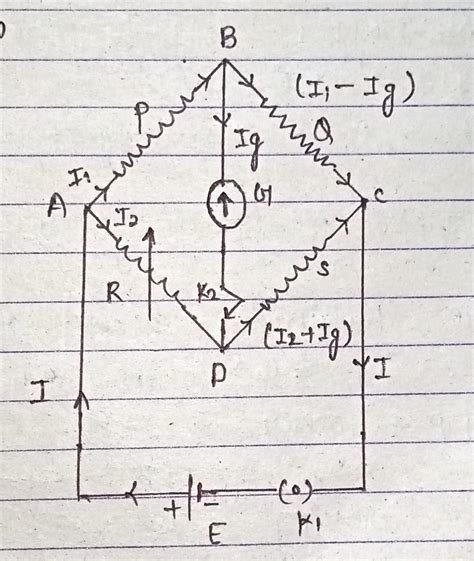 B
(I1 - Ig)
P
Ig
Q
I1
A
G
C
I2
R
K2
S
(I2+Ig)
D
I
I
+
-
E
(•)
K1